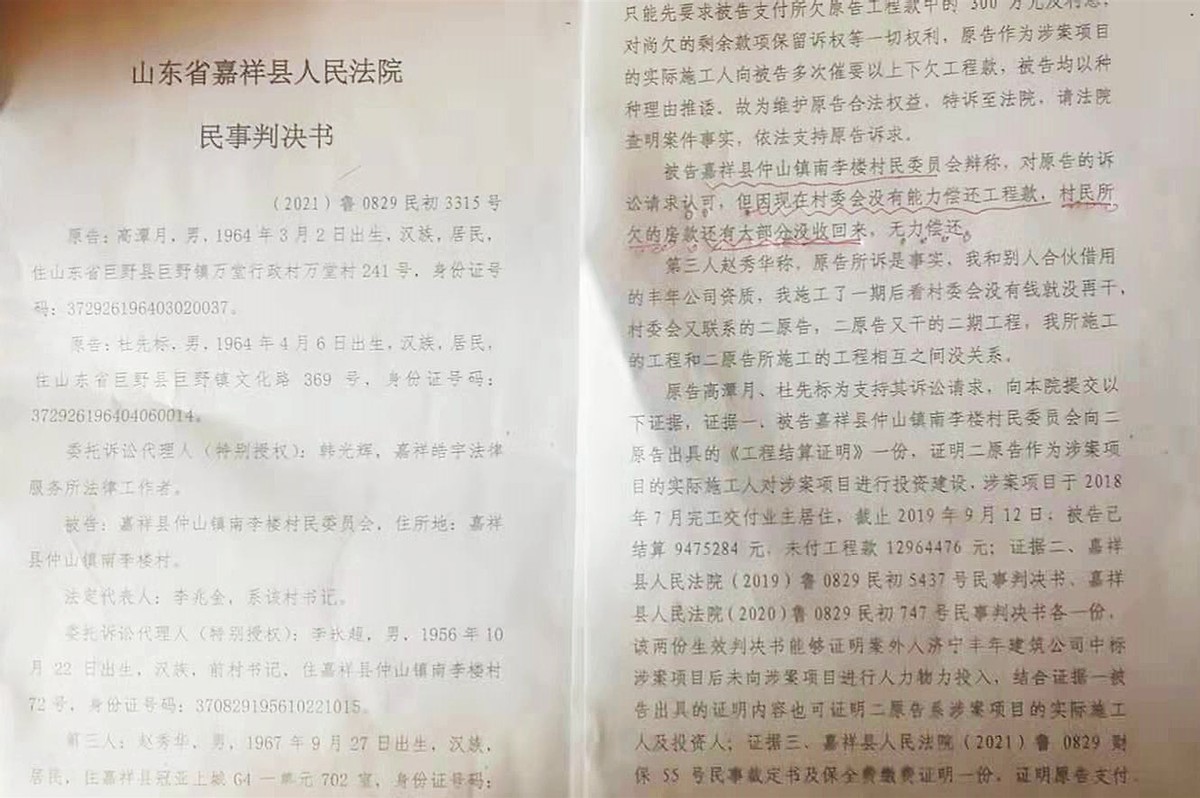 山东省嘉祥县人民法院
民事判决书
（2021）鲁0829民初3315号
原告：高潭月，男，1964年3月2日出生，汉族，居民，
住山东省巨野县巨野镇万堂行政村万堂村241号，身份证号
码：372926196403020037。
原告：杜先标，男，1964年4月6日出生，汉族，居民，
住山东省巨野县巨野镇文化路369号，身份证号码：
372926196404060014。
委托诉讼代理人（特别授权）：韩光辉，嘉祥皓宇法律
服务所法律工作者。
被告：嘉祥县仲山镇南李楼村民委员会，住所地：嘉祥
县仲山镇南李楼村。
法定代表人：李兆金，系该村书记。
委托诉讼代理人（特别授权）：李长超，男，1956年10
月22日出生，汉族，前村书记，住嘉祥县仲山镇南李楼村
72号，身份证号码：370829195610221015。
第三人：赵秀华，男，1967年9月27日出生，汉族，
居民，住嘉祥县冠亚上城G4一单元702室，身份证号码：
只能先要求被告支付所欠原告工程款中的300万元及利息，
对尚欠的剩余款项保留诉权等一切权利，原告作为涉案项目
的实际施工人向被告多次催要以上下欠工程款，被告均以种
种理由推诿。故为维护原告合法权益，特诉至法院，请法院
查明案件事实，依法支持原告诉求。
被告嘉祥县仲山镇南李楼村民委员会辩称，对原告的诉
讼请求认可，但因现在村委会没有能力偿还工程款，村民所
欠的房款还有大部分没收回来，无力偿还。
第三人赵秀华称，原告所诉是事实，我和别人合伙借用
的丰年公司资质，我施工了一期后看村委会没有钱就没再干，
村委会又联系的二原告，二原告又干的二期工程，我所施工
的工程和二原告所施工的工程相互之间没关系。
原告高潭月、杜先标为支持其诉讼请求，向本院提交以
下证据，证据一、被告嘉祥县仲山镇南李楼村民委员会向二
原告出具的《工程结算证明》一份，证明二原告作为涉案项
目的实际施工人对涉案项目进行投资建设，涉案项目于2018
年7月完工交付业主居住，截止2019年9月12日，被告已
结算9475284元，未付工程款12964476元；证据二、嘉祥
县人民法院（2019）鲁0829民初5437号民事判决书、嘉祥
县人民法院（2020）鲁0829民初747号民事判决书各一份，
该两份生效判决书能够证明案外人济宁丰年建筑公司中标
涉案项目后未向涉案项目进行人力物力投入，结合证据一被
告出具的证明内容也可证明二原告系涉案项目的实际施工
人及投资人；证据三、嘉祥县人民法院（2021）鲁0829财
保55号民事裁定书及保全费缴费证明一份，证明原告支付